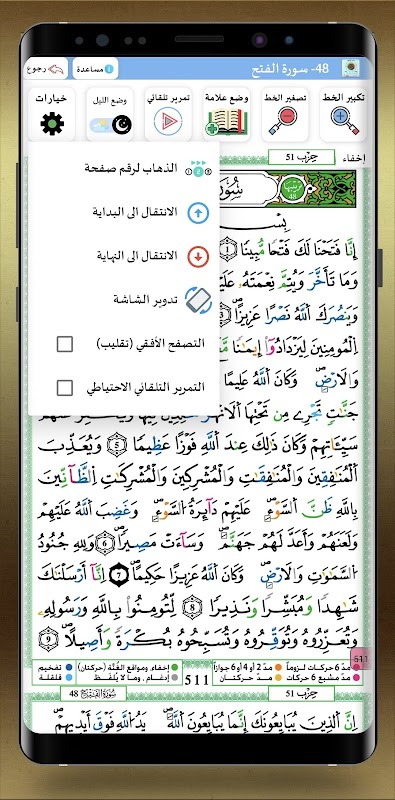 48- سورة الفتح
مساعدة
رجوع
تكبير الخط
تصغير الخط
وضع علامة
تمرير تلقائي
وضع الليل
خيارات
إخفاء
حِزْب 51
الذهاب لرقم صفحة
الانتقال الى البداية
الانتقال الى النهاية
تدوير الشاشة
التصفح الأفقي (تقليب)
التمرير التلقائي الاحتياطي
سُورَ
بِسْ
إِنَّا فَتَحْنَا لَكَ فَتْحًا مُّبِينًا 1
وَمَا تَأَخَّرَ وَيُتِمَّ نِعْمَتَهُ عَلَيْ
وَيَنصُرَكَ اللَّهُ نَصْرًا عَزِيزًا 3
الْمُؤْمِنِينَ لِيَزْدَادُوا إِيمَٰنًا
وَالْأَرْضِ وَكَانَ اللَّهُ عَلِيمًا
جَنَّٰتٍ تَجْرِي مِن تَحْتِهَا الْأَنْهَٰرُ خَٰلِدِينَ فِيهَا وَيُكَفِّرَ عَنْهُمْ
سَيِّئَاتِهِمْ وَكَانَ ذَٰلِكَ عِندَ اللَّهِ فَوْزًا عَظِيمًا 5 وَيُعَذِّبَ
الْمُنَٰفِقِينَ وَالْمُنَٰفِقَٰتِ وَالْمُشْرِكِينَ وَالْمُشْرِكَٰتِ الظَّانِّينَ
بِاللَّهِ ظَنَّ السَّوْءِ عَلَيْهِمْ دَائِرَةُ السَّوْءِ وَغَضِبَ اللَّهُ عَلَيْهِمْ
وَلَعَنَهُمْ وَأَعَدَّ لَهُمْ جَهَنَّمَ وَسَاءَتْ مَصِيرًا 6 وَلِلَّهِ جُنُودُ
السَّمَٰوَٰتِ وَالْأَرْضِ وَكَانَ اللَّهُ عَزِيزًا حَكِيمًا 7 إِنَّا أَرْسَلْنَٰكَ
شَٰهِدًا وَمُبَشِّرًا وَنَذِيرًا 8 لِّتُؤْمِنُوا بِاللَّهِ وَرَسُولِهِ
وَتُعَزِّرُوهُ وَتُوَقِّرُوهُ وَتُسَبِّحُوهُ بُكْرَةً وَأَصِيلًا 9
511
مدّ 6 حركات لزوماً
مدّ 2 أو 4 أو 6 جوازاً
إخفاء، ومواقع الغُنَّة (حركتان)
تفخيم
مدّ مشبع 6 حركات
مدّ حـركتـان
511
إدغام، وما لا يُلفَظ
قلقلة
حِزْب 51
سُورَةُ الْفَتْحِ 48
إِنَّ الَّذِينَ يُبَايِعُونَكَ إِنَّمَا يُبَايِعُونَ اللَّهَ يَدُ اللَّهِ فَوْقَ أَيْدِيهِمْ